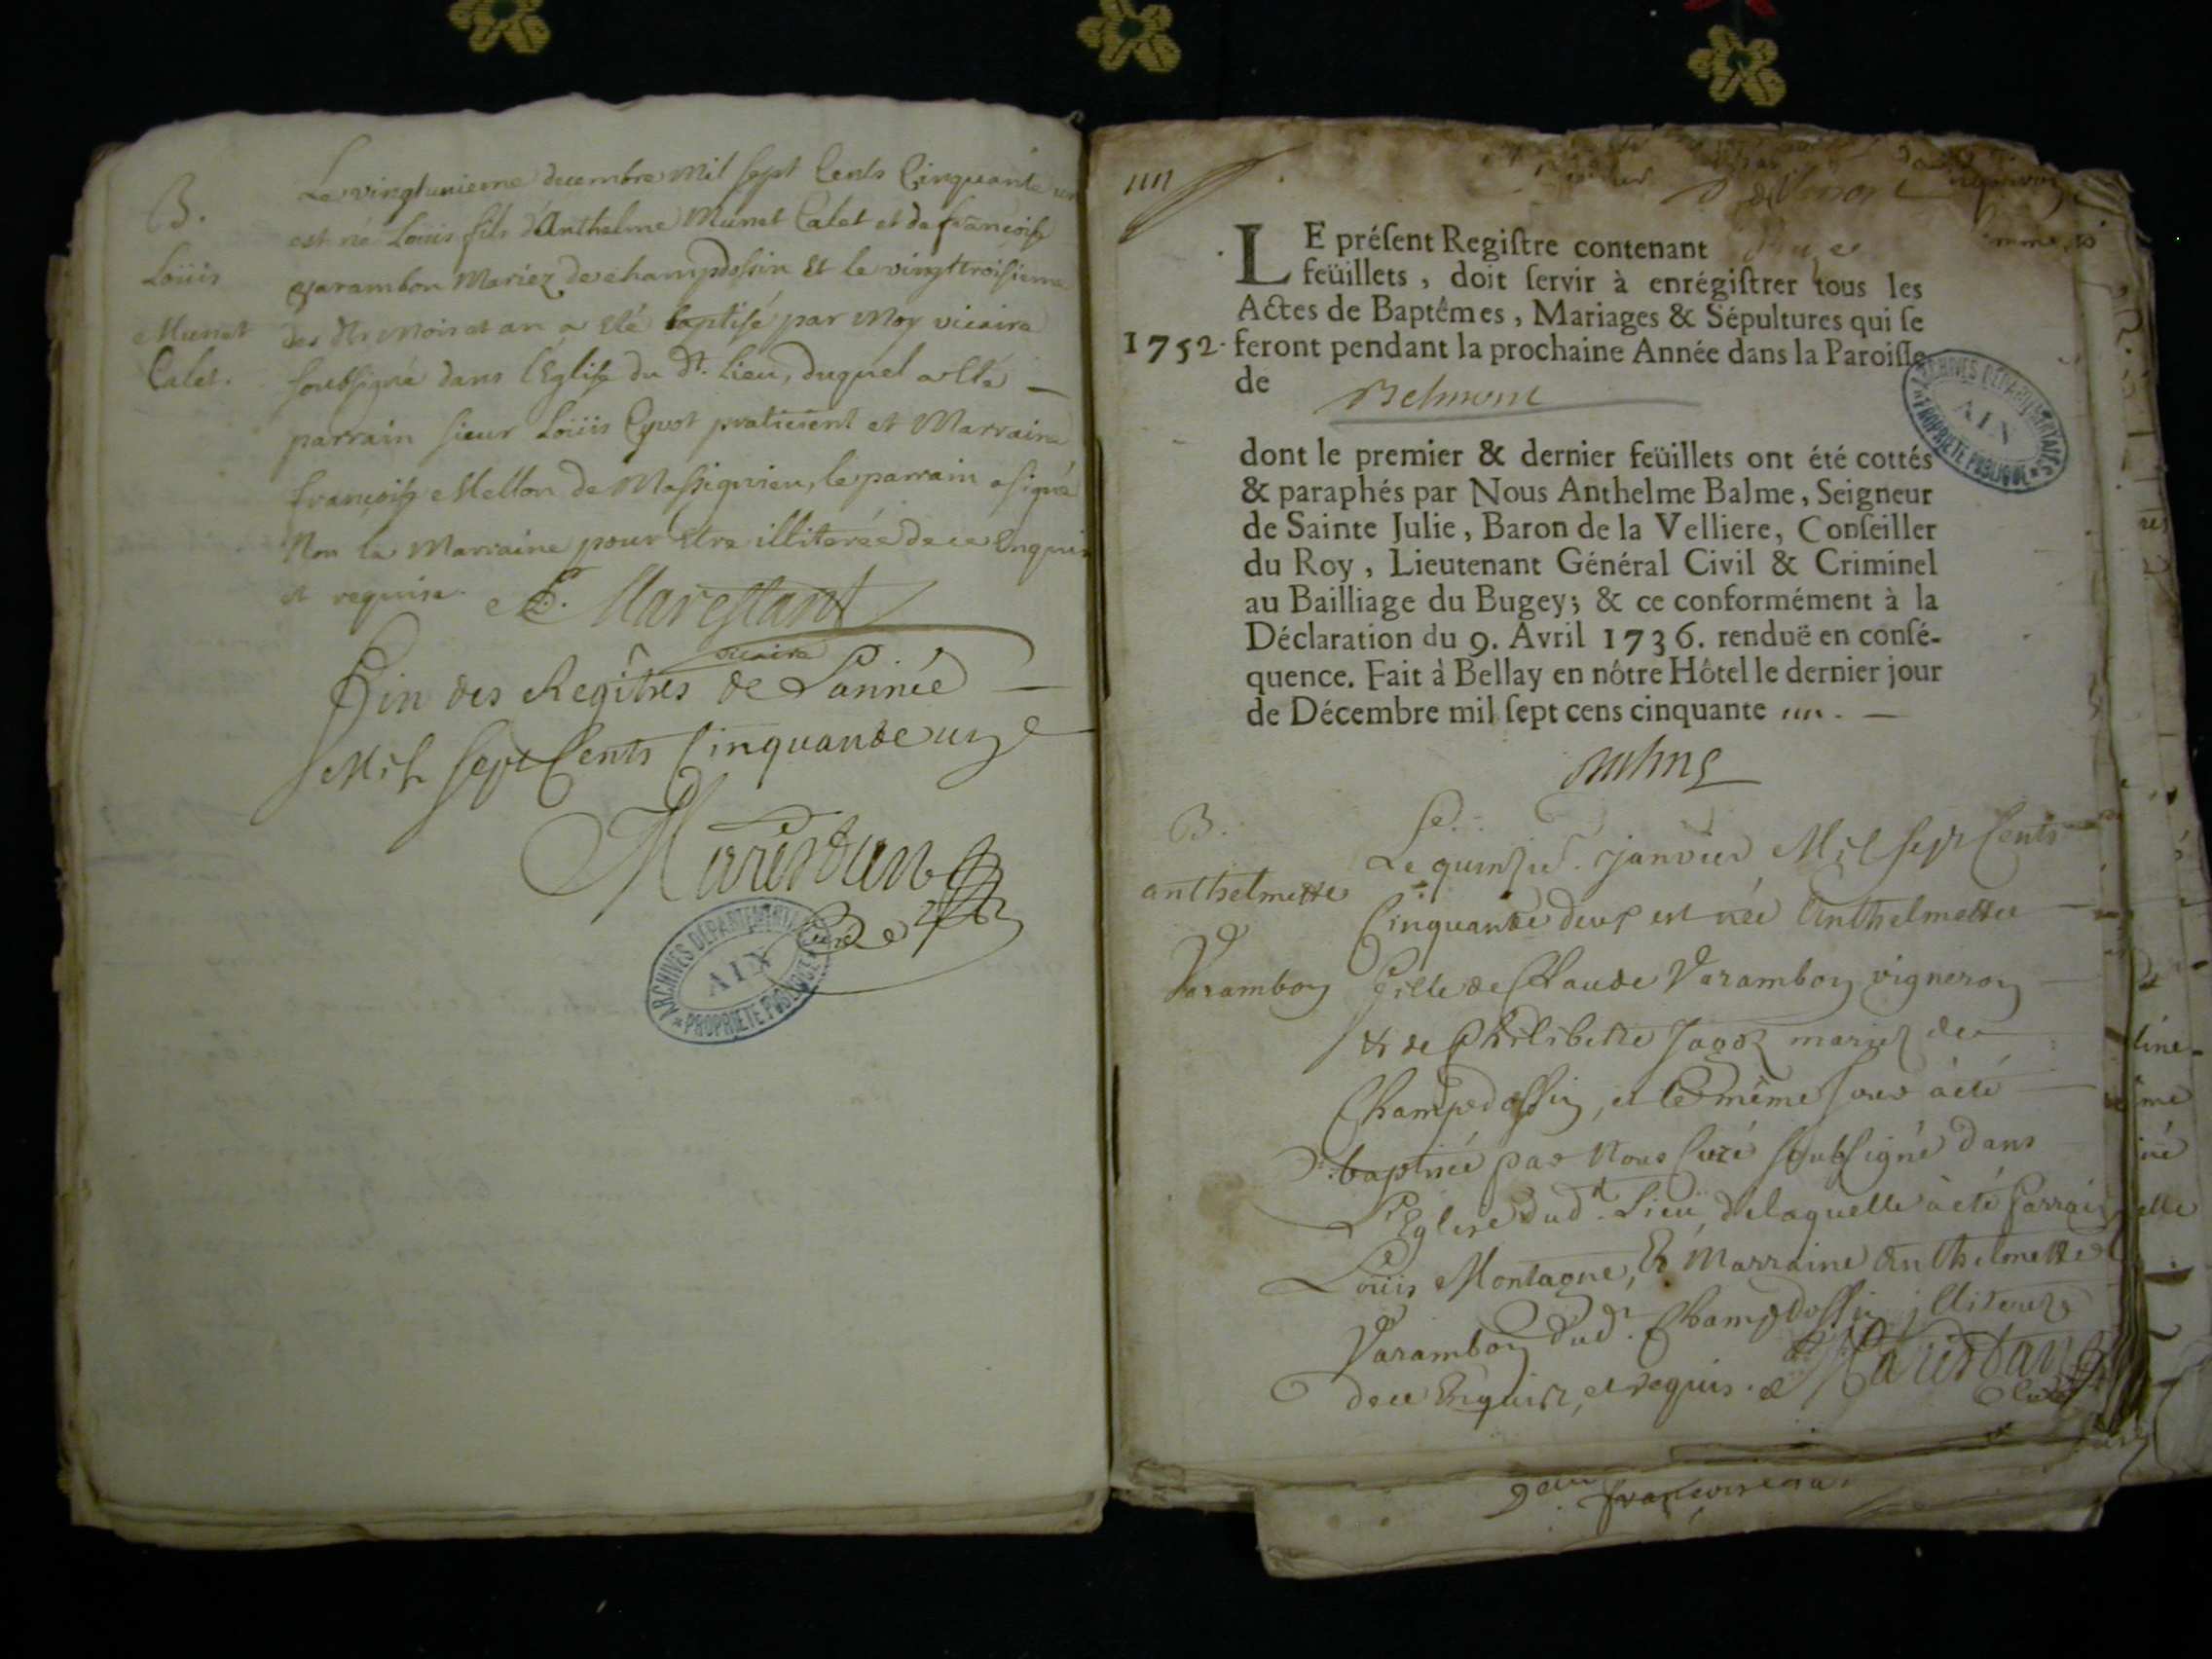 B.
Loüis
Munet
Calet.
Le vingtunieme decembre Mil sept Cents Cinquante un
est né Loüis fils d'Anthelme Munet Calet et de françoise
Varambon Mariez de champdossin Et le vingttroisieme
des dts Mois et an a été baptisé par Moy vicaire
soubsigné dans l'Eglise du dt. lieu, duquel a été
parrain sieur Loüis Cyvot praticient et Marraine
françoise Melton de Massignieu, le parrain a signé
Non la Marraine pour être illiterée de ce Enquise
et requise. Marestant
vicaire
Fin des Regîtres de L'année
Mil sept Cents Cinquante un
Marestan
Curé
ARCHIVES DÉPARTEMENTALES
AIN
PROPRIÉTÉ PUBLIQUE
LE préſent Regiſtre contenant
feüillets, doit ſervir à enrégiſtrer tous les
Actes de Baptêmes, Mariages & Sépultures qui ſe
1752. feront pendant la prochaine Année dans la Paroiſſe
de Belmont
ARCHIVES DÉPARTEMENTALES
AIN
PROPRIÉTÉ PUBLIQUE
dont le premier & dernier feüillets ont été cottés
& paraphés par Nous Anthelme Balme, Seigneur
de Sainte Julie, Baron de la Velliere, Conſeiller
du Roy, Lieutenant Général Civil & Criminel
au Bailliage du Bugey; & ce conformément à la
Déclaration du 9. Avril 1736. renduë en conſé-
quence. Fait à Bellay en nôtre Hôtel le dernier jour
de Décembre mil ſept cens cinquante un.
Balme
B.
anthelmette
Varambon
Le quinzie. janvier Mil sept Cents
Cinquante deux est née Anthelmette
fille de Claude Varambon vigneron
& de Philiberte Jagoz mariez de
Champdossin, et le même jour à été
baptisée par Nous Curé soubsigné dans
L'Eglise dudt. Lieu, delaquelle à été Parrain
Loüis Montagne, & Marraine Anthelmette
Varambon dudt. Champdossin illiterez
de ce Enquis, et requis. Marestan
Curé